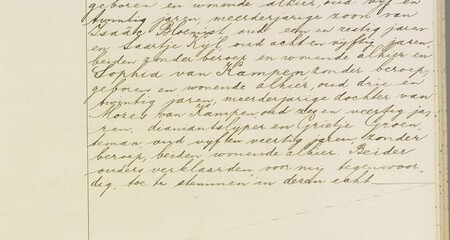 geboren en wonende alhier, oud vijf en
twintig jaren, meerderjarige zoon van
Izaak Bloemist, oud een en zestig jaren
en Saartje Kijl, oud acht en vijftig jaren,
beiden zonder beroep en wonende alhier en
Sophia van Kampen zonder beroep,
geboren en wonende alhier, oud drie en
twintig jaren, meerderjarige dochter van
Mozes van Kampen, oud zes en veertig ja-
ren, diamantslijper en Grietje Groen
teman, oud vijf en veertig jaren zonder
beroep, beiden wonende alhier. Beider
ouders verklaarden voor mij tegenwoor-
dig, toe te stemmen in dezen echt